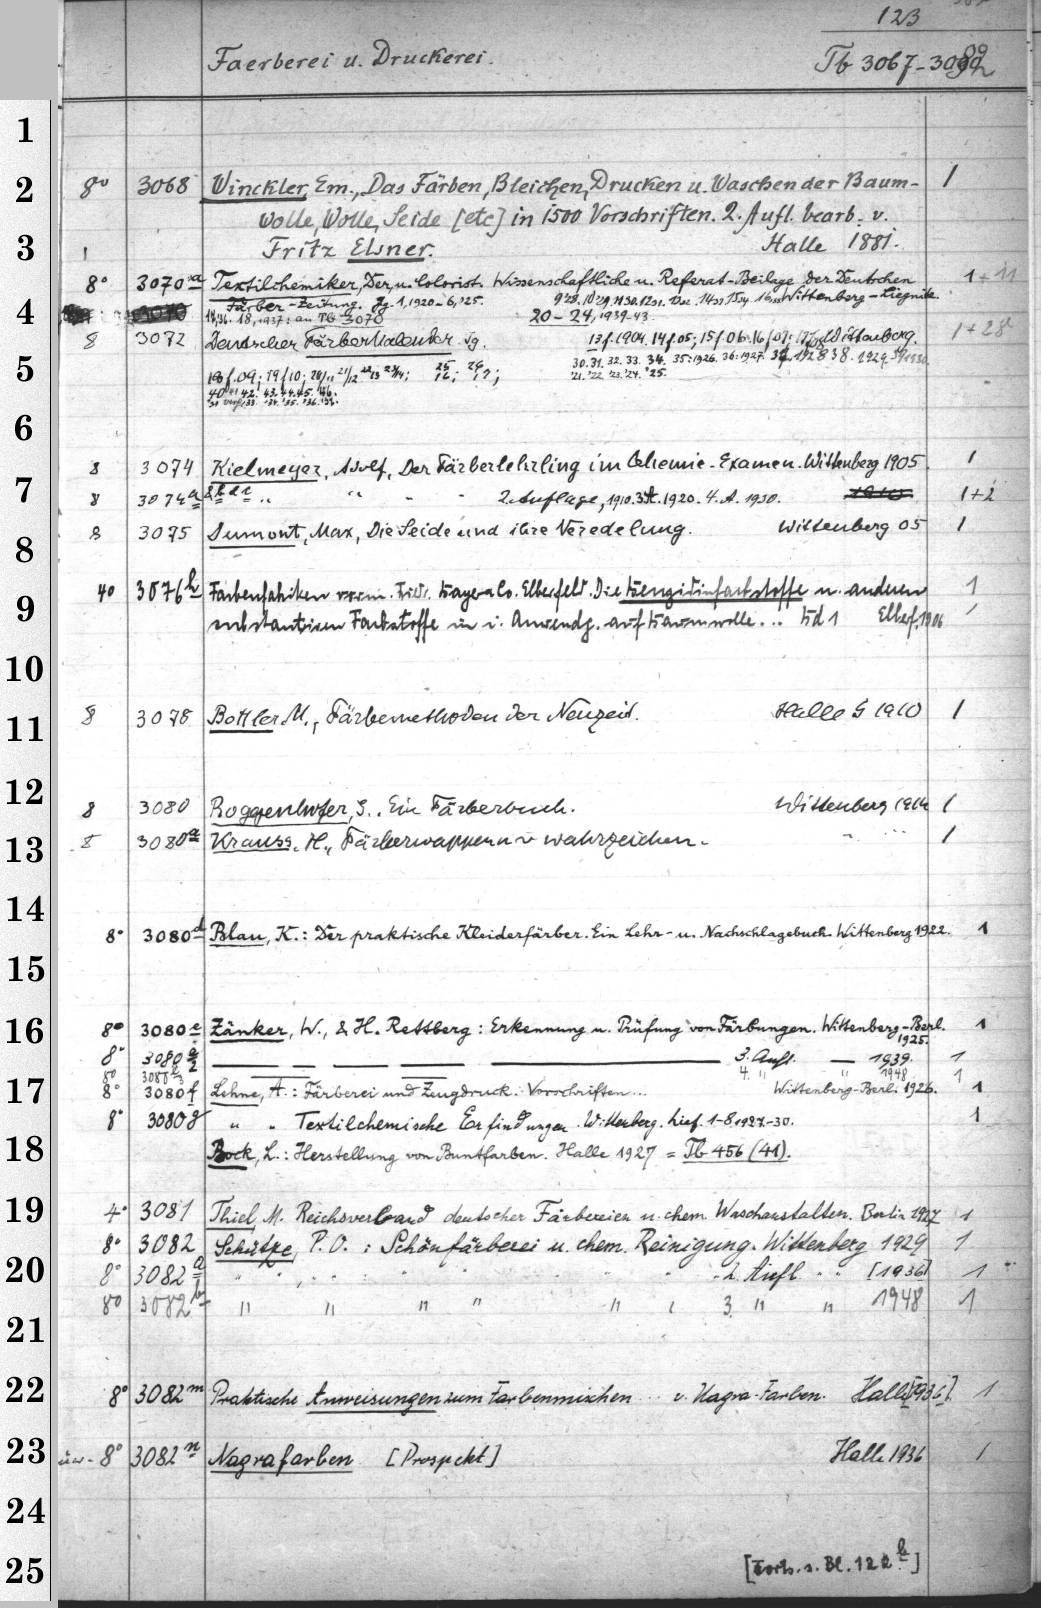 123
Faerberei u. Druckerei. Tb 3067-3082
1
2 8° 3068 Winckler, Em., Das Färben, Bleichen, Drucken u. Waschen der Baum- 1
wolle, Wolle, Seide [etc] in 1500 Vorschriften. 2. Aufl. bearb. v.
3 Fritz Elsner. Halle 1881.
8° 3070a Textilchemiker, Der, u. Colorist. Wissenschaftliche u. Referat-Beilage der Deutschen 1+11
Färber-Zeitung. Jg. 1, 1920-6, 25. Wittenberg-Liegnitz.
4 3070 18, 1937: an TB 3070 20-24, 1939-43
8 3072 Deutscher Färberkalender Jg. 13 f. 1904. 14 f. 05; 15 f. 06; 16 f. 07; Wittenberg. 1+28
30. 31. 32. 33. 34. 35:1926. 36:1927.
5 18 f. 09; 19 f 10;
6
8 3074 Kielmeyer, Adolf, Der Färberlehrling im Chemie-Examen. Wittenberg 1905 1
7 8 3074a " " " " 2. Auflage, 1910. 3.A. 1920. 4. A. 1930. 1910 1+2
8 3075 Dumont, Max, Die Seide und ihre Veredelung. Wittenberg 05 1
8
4° 3076h Farbenfabriken vorm. Friedr. Bayer & Co. Elberfeld. Die Benzidinfarbstoffe u. anderen 1
9 substantiven Farbstoffe in i. Anwendg. auf Baumwolle... Bd 1 Elberf. 1906
10
8 3078 Bottler M., Färbemethoden der Neuzeit. Halle S 1910 1
11
12 8 3080 Roggenhofer, G., Ein Färberbuch. Wittenberg 1914 1
13 8 3080a Krauss, H., Färberwappen u wahrzeichen. " " 1
14
8° 3080d Blau, K.: Der praktische Kleiderfärber. Ein Lehr- u. Nachschlagebuch. Wittenberg 1922. 1
15
16 8° 3080e Zänker, W., & H. Rettberg: Erkennung u. Prüfung von Färbungen. Wittenberg-Berl. 1925. 1
8° 3080 3. Aufl. — 1939. 1
8° 3080 4. " " 1948 1
17 8° 3080f Lehne, A.: Färberei und Zeugdruck. Vorschriften... Wittenberg-Berl. 1926. 1
8° 3080g " " Textilchemische Erfindungen. Wittenberg. Lief. 1-8 1927-30. 1
18 Bock, L.: Herstellung von Buntfarben. Halle 1927 = Tb 456 (41).
19 4° 3081 Thiel, M. Reichsverband deutscher Färbereien u. chem. Waschanstalten. Berlin 1927 1
8° 3082 Schütze, P.O.: Schönfärberei u. chem. Reinigung. Wittenberg 1929 1
20 8° 3082a " " " " 2. Aufl. " " [1936] 1
8° 3082b " " " " " 3. " " 1948 1
21
22 8° 3082m Praktische Anweisungen zum Farbenmischen ... v. Nagra-Farben. Halle [1936]. 1
23 8° 3082n Nagrafarben [Prospekt] Halle 1936 1
24
25 [Forts. s. Bl. 122b]